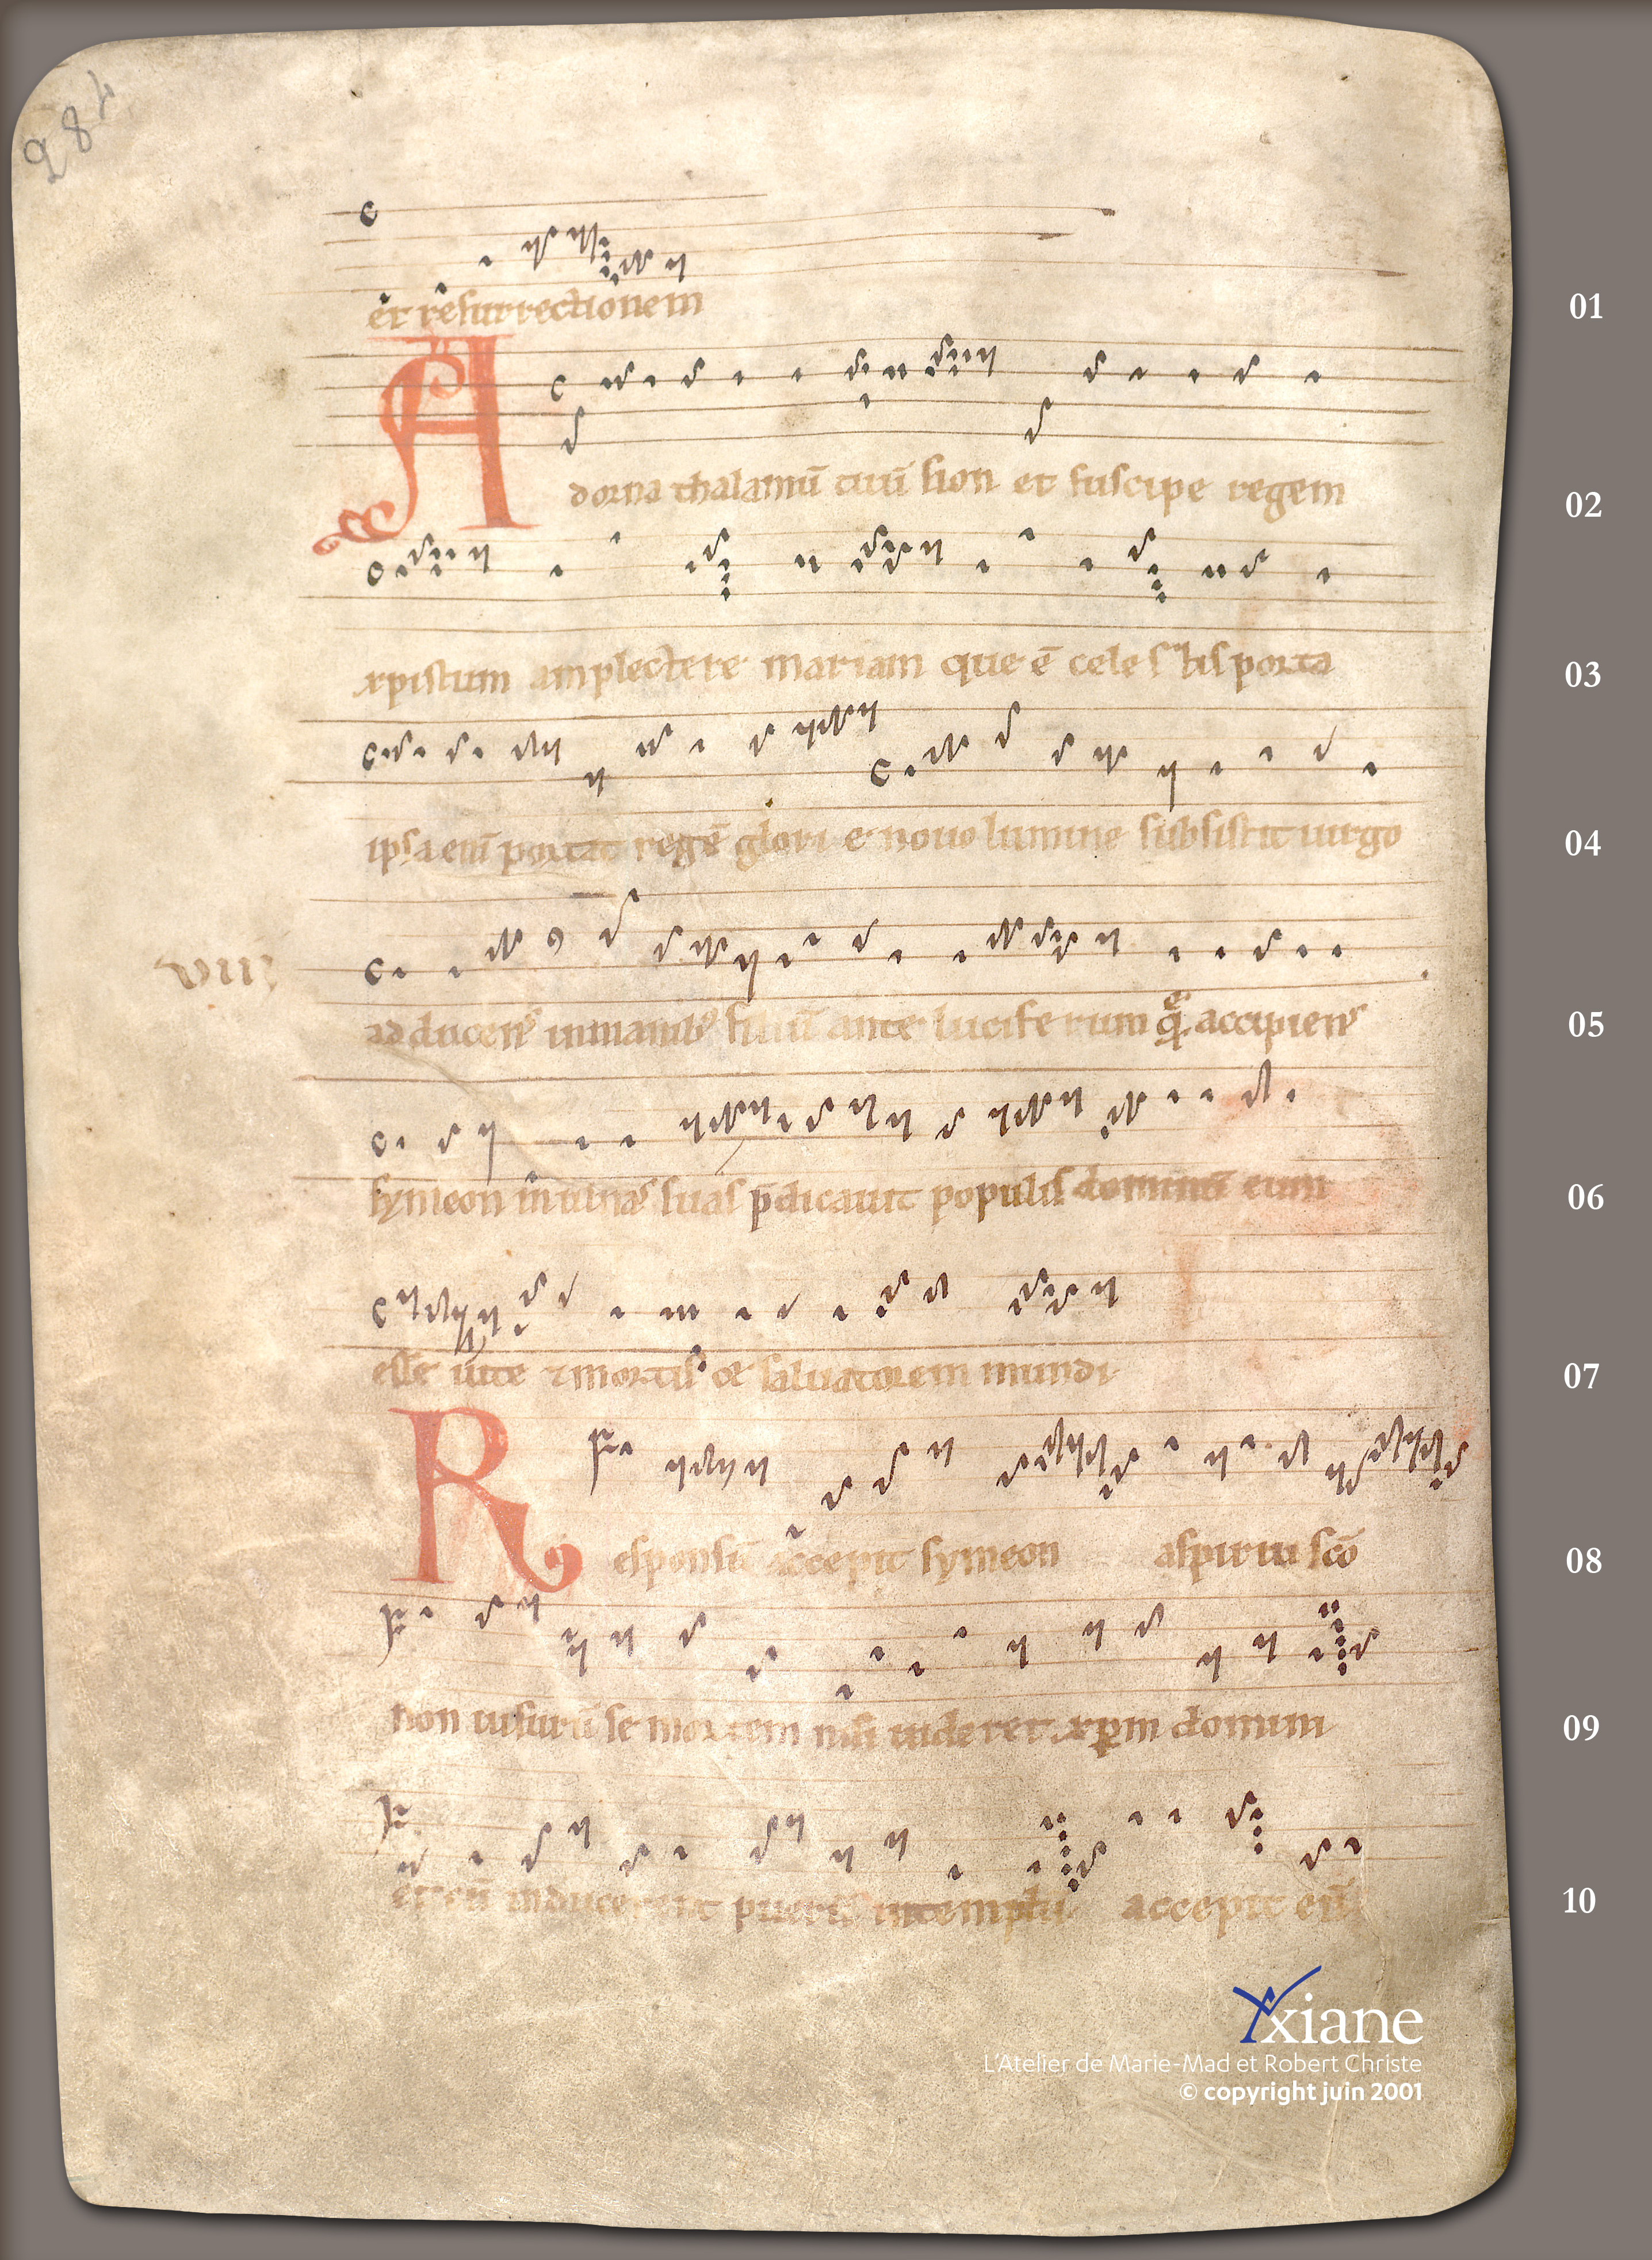 284
01
et resurrectionem
02
Adorna thalamū tuū sion et suscipe regem
03
xpistum amplectere mariam que ē celestis porta
04
ipsa eni̅ portat regē glori e nouo lumine subsistit uirgo
VIII
05
adducens inmanib' filiū ante luciferum quē accipiens
06
symeon in ulnas suas p̄dicauit populis dominū eum
07
esse uite & mortis & saluatorem mundi
08
Responsū accepit symeon aspiritu sc̄o
09
non uisurū se mortem nisi uideret xp̄m domini
10
et cū inducerent puerū intemplū accepit eū
Yxiane
L'Atelier de Marie-Mad et Robert Christe
© copyright juin 2001